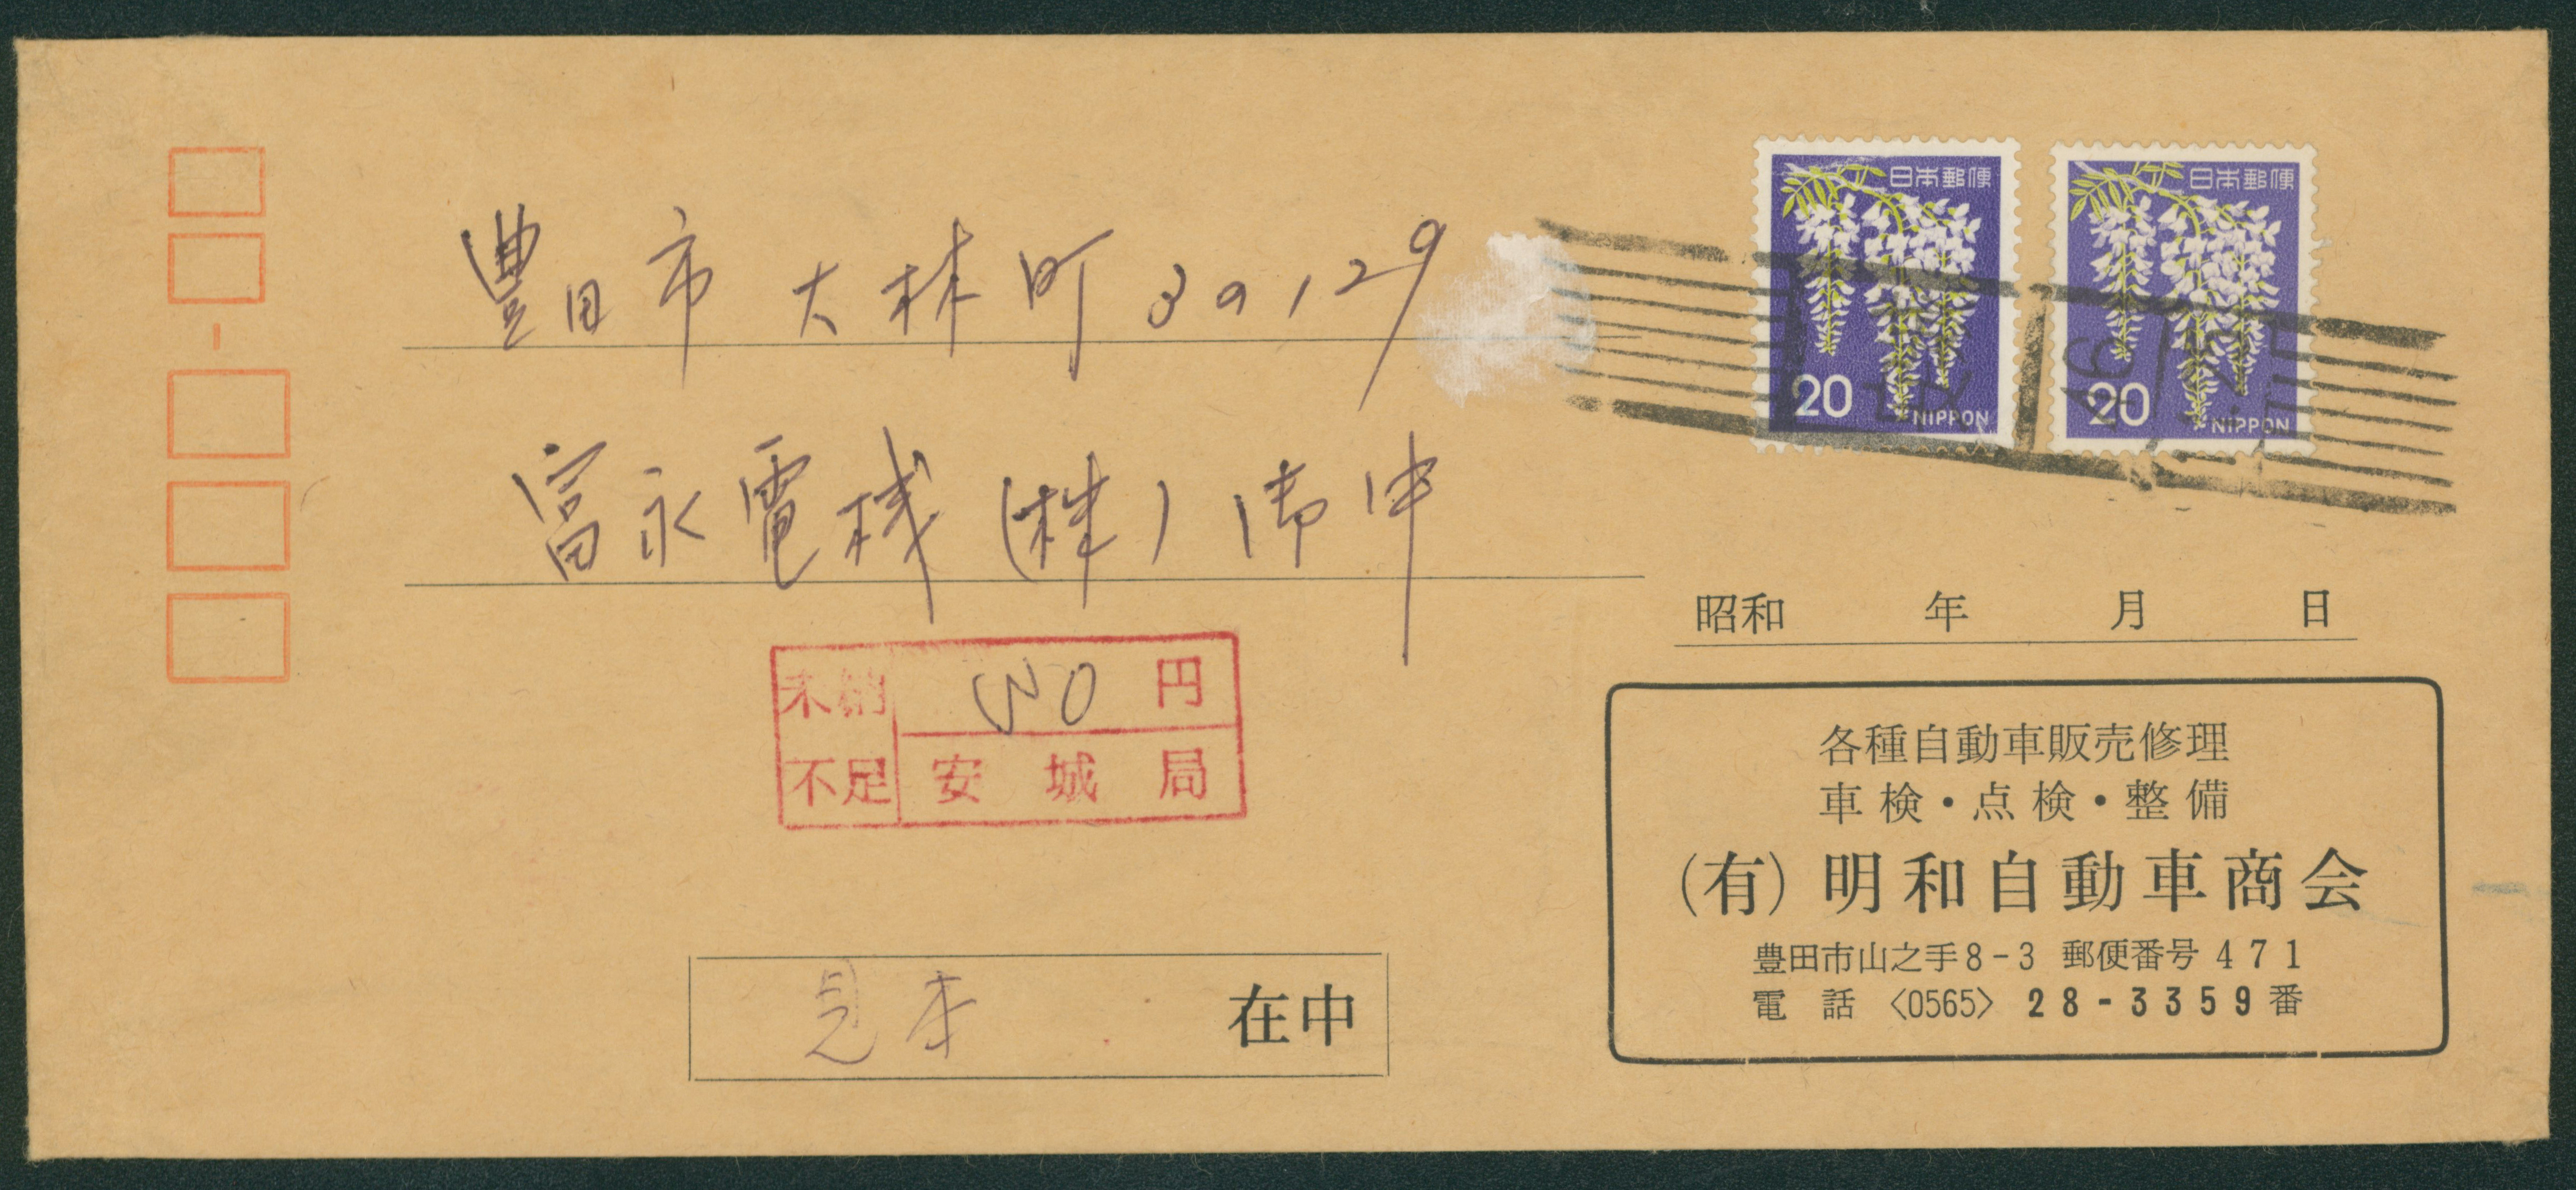 豊田市大林町3の129
富永電機(株)御中
日本郵便
20
NIPPON
日本郵便
20
NIPPON
未納
不足
円
安城局
昭和 年 月 日
各種自動車販売修理
車検・点検・整備
(有)明和自動車商会
豊田市山之手8-3 郵便番号 471
電話〈0565〉28-3359番
見本 在中